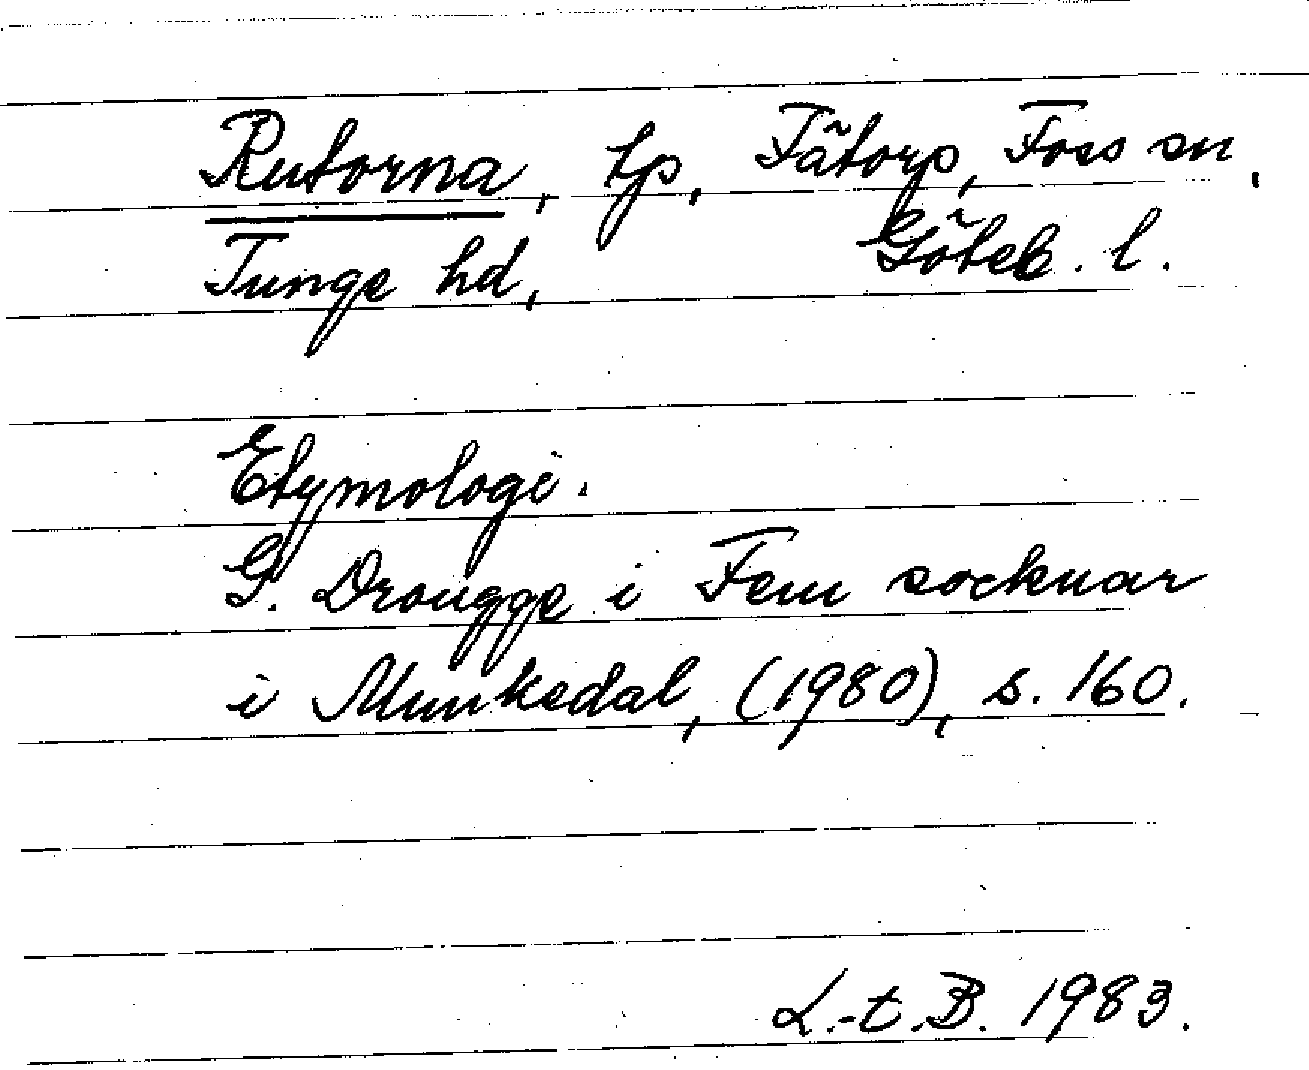 Rutorna, tp. Fätorp, Foss sn,
Tunge hd, Göteb. l.
Etymologi.
G. Drougge i Fem socknar
i Munkedal, (1980), s. 160.
L.-t. B. 1983.